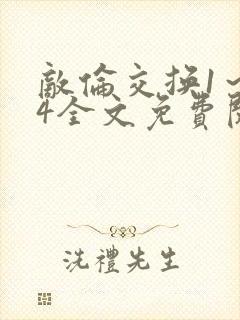 敵倫交換1~
4全文免費閱
洗禮先生